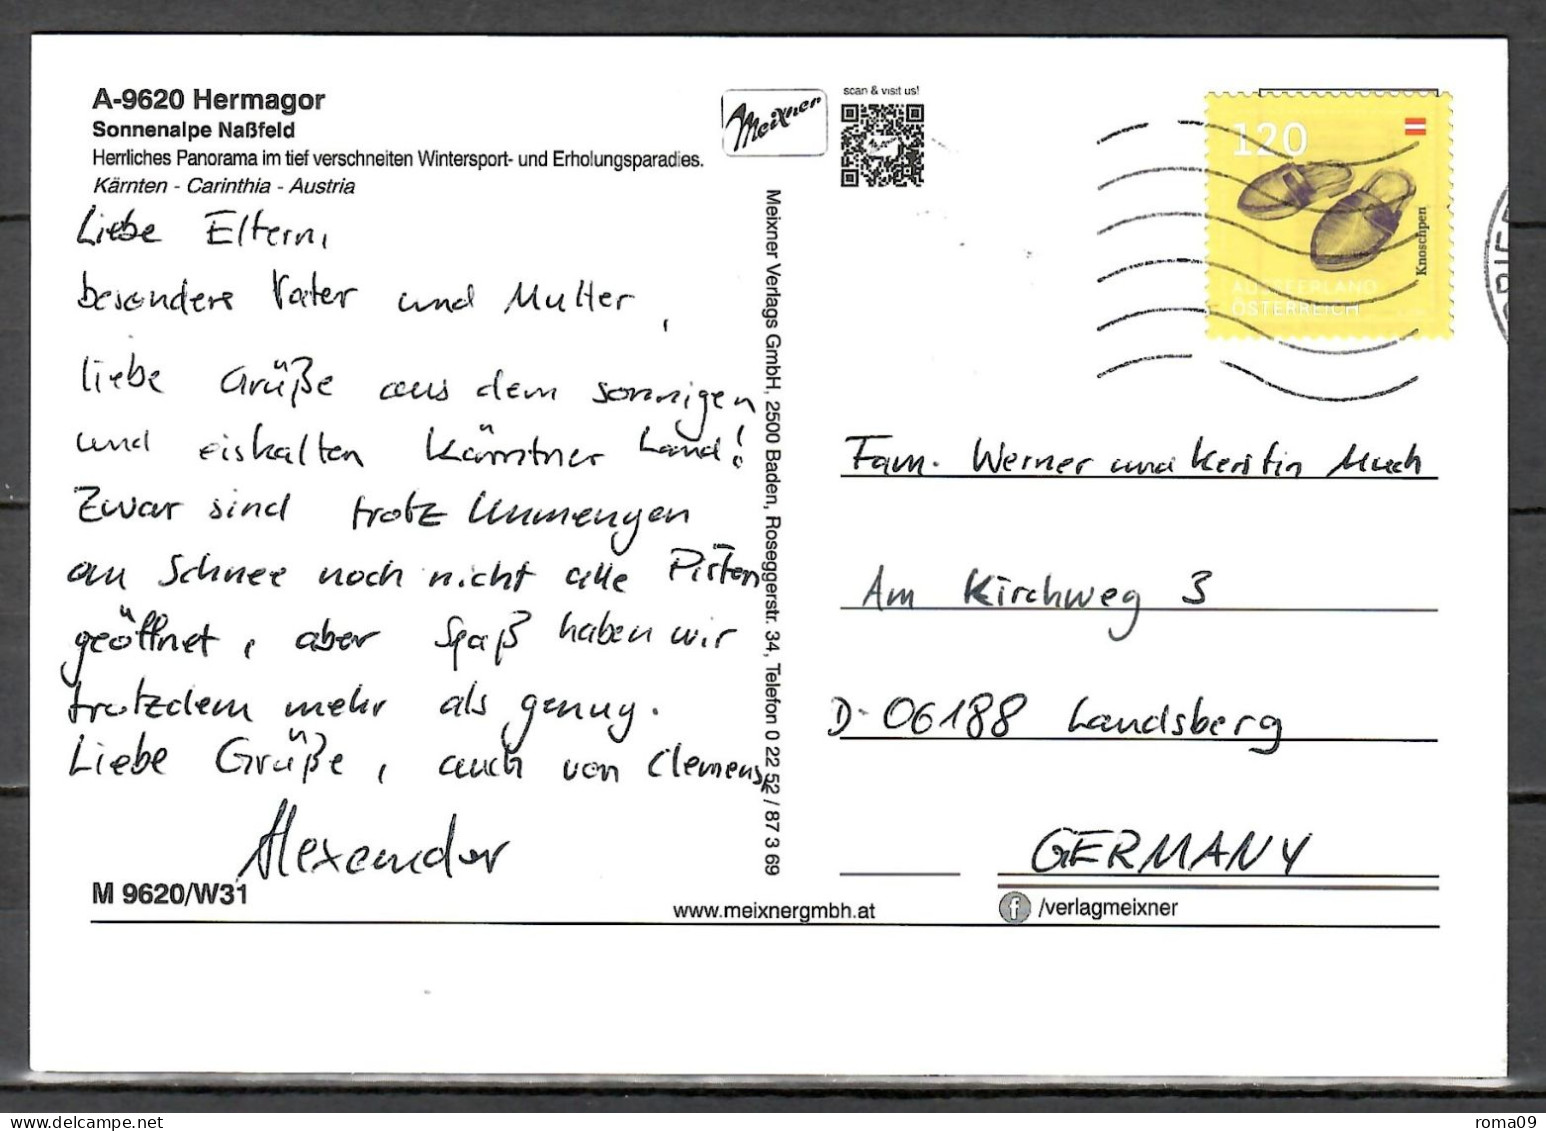 A-9620 Hermagor
Sonnenalpe Naßfeld
Herrliches Panorama im tief verschneiten Wintersport- und Erholungsparadies.
Kärnten - Carinthia - Austria
Liebe Eltern,
besondere Vater und Mutter,
liebe Grüße aus dem sonnigen
und eiskalten Kärntner Land!
Zwar sind trotz Unmengen
an Schnee noch nicht alle Pisten
geöffnet, aber Spaß haben wir
trotzdem mehr als genug.
Liebe Grüße, auch von Clemens,
Alexander
M 9620/W31
Meixner
scan & visit us!
Meixner Verlags GmbH, 2500 Baden, Roseggerstr. 34, Telefon 0 22 52 / 87 3 69
120
Knoschpen
AUSSEERLAND
ÖSTERREICH
BRIEF
Fam. Werner und Kerstin Much
Am Kirchweg 3
D-06188 Landsberg
GERMANY
www.meixnergmbh.at
/verlagmeixner
roma09